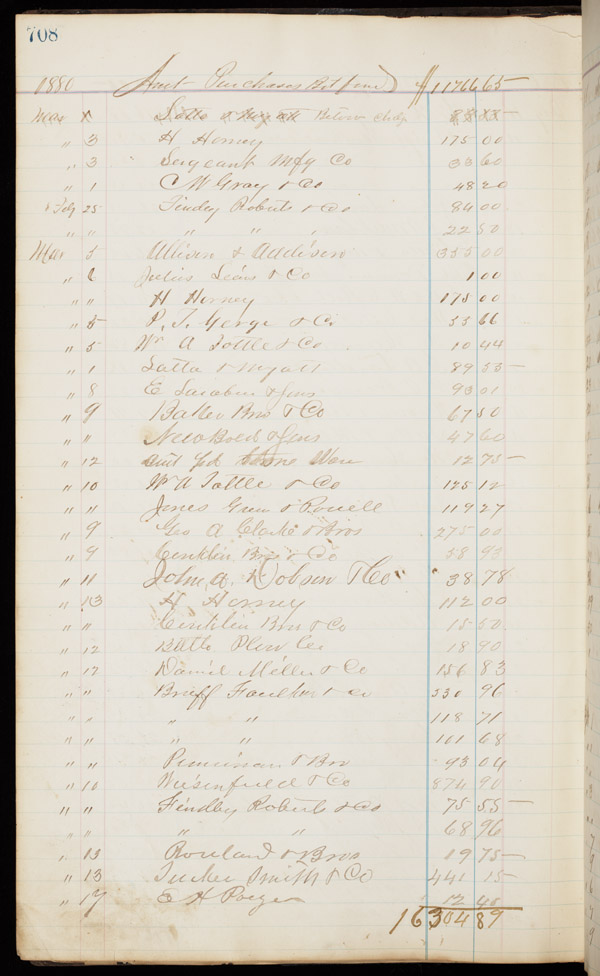 708
1880 Amt Purchases Bt ford $ 11766 65
Mar Latta &
" 3 H Horney 175 00
" 3 Sergeant Mfg Co 33 60
" 1 C W Gray & Co 48 20
" Feby 25 Findley Roberts & Co 84 00
" " " " " 22 50
Mar 5 Allison & Addison 355 00
" Julius & Co 1 00
" " H Horney 175 00
" 5 P. T. & Co 33 66
" 5 Wm A Tottle & Co 10 44
" 1 Latta & Myatt 89 53
" 8 E & Sons 93 01
" 9 Bros & Co 67 50
" " & Sons 47 60
" 12 Ware 12 75
" 10 Wm A Tottle & Co 125 12
" " Jones & Powell 119 27
" 9 Geo A Clarke & Bros 275 00
" 9 Conklin Bros & Co 58 93
" 11 John A. Dobson & Co 38 78
" 13 H Horney 112 00
" " Conklin Bros & Co 15 60
" 12 Battle Plow Co 18 90
" 12 Daniel Miller & Co 156 83
" " Bruff Faulkner & co 330 96
" " " " 118 71
" " " " 101 68
" " & Bro 93 04
" 10 Wiesenfield & Co 874 90
" " Findley Roberts & Co 75 55
" " " " 68 96
" 13 Rowland & Bros 19 75
" 13 Tucker Smith & Co 441 15
" 17 E H 12 40
16304 89